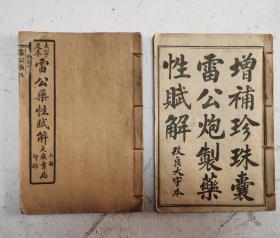 大字
足本
雷公藥性賦解
上海
大成書局
印行
增補珍珠囊
雷公炮製藥
性賦解
改良大字本